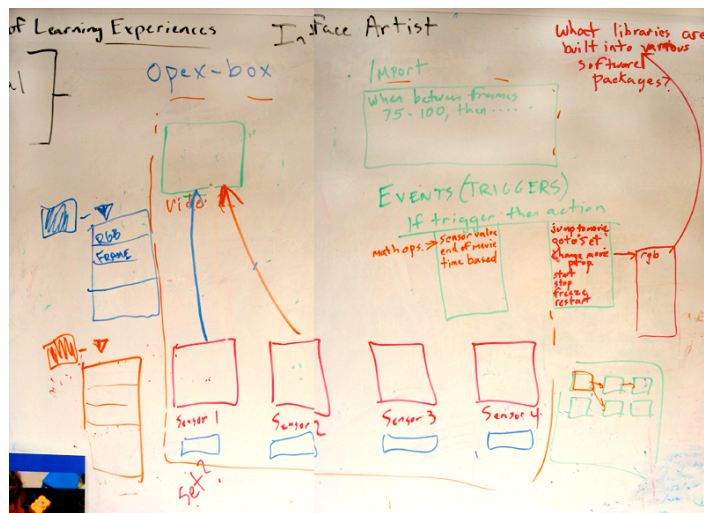 of Learning Experiences
Inface Artist
al
What libraries are
built into various
software
packages?
Opex-box
Import
When between frames
75-100, then.....
EVENTS (TRIGGERS)
If trigger then action
Video
RGB
FRAME
Math ops.
sensor value
end of movie
time based
jump to movie
goto 'set'
change movie
prop
start
stop
freeze
restart
rgb
Sensor 1
Sensor 2
Sensor 3
Sensor 4
set